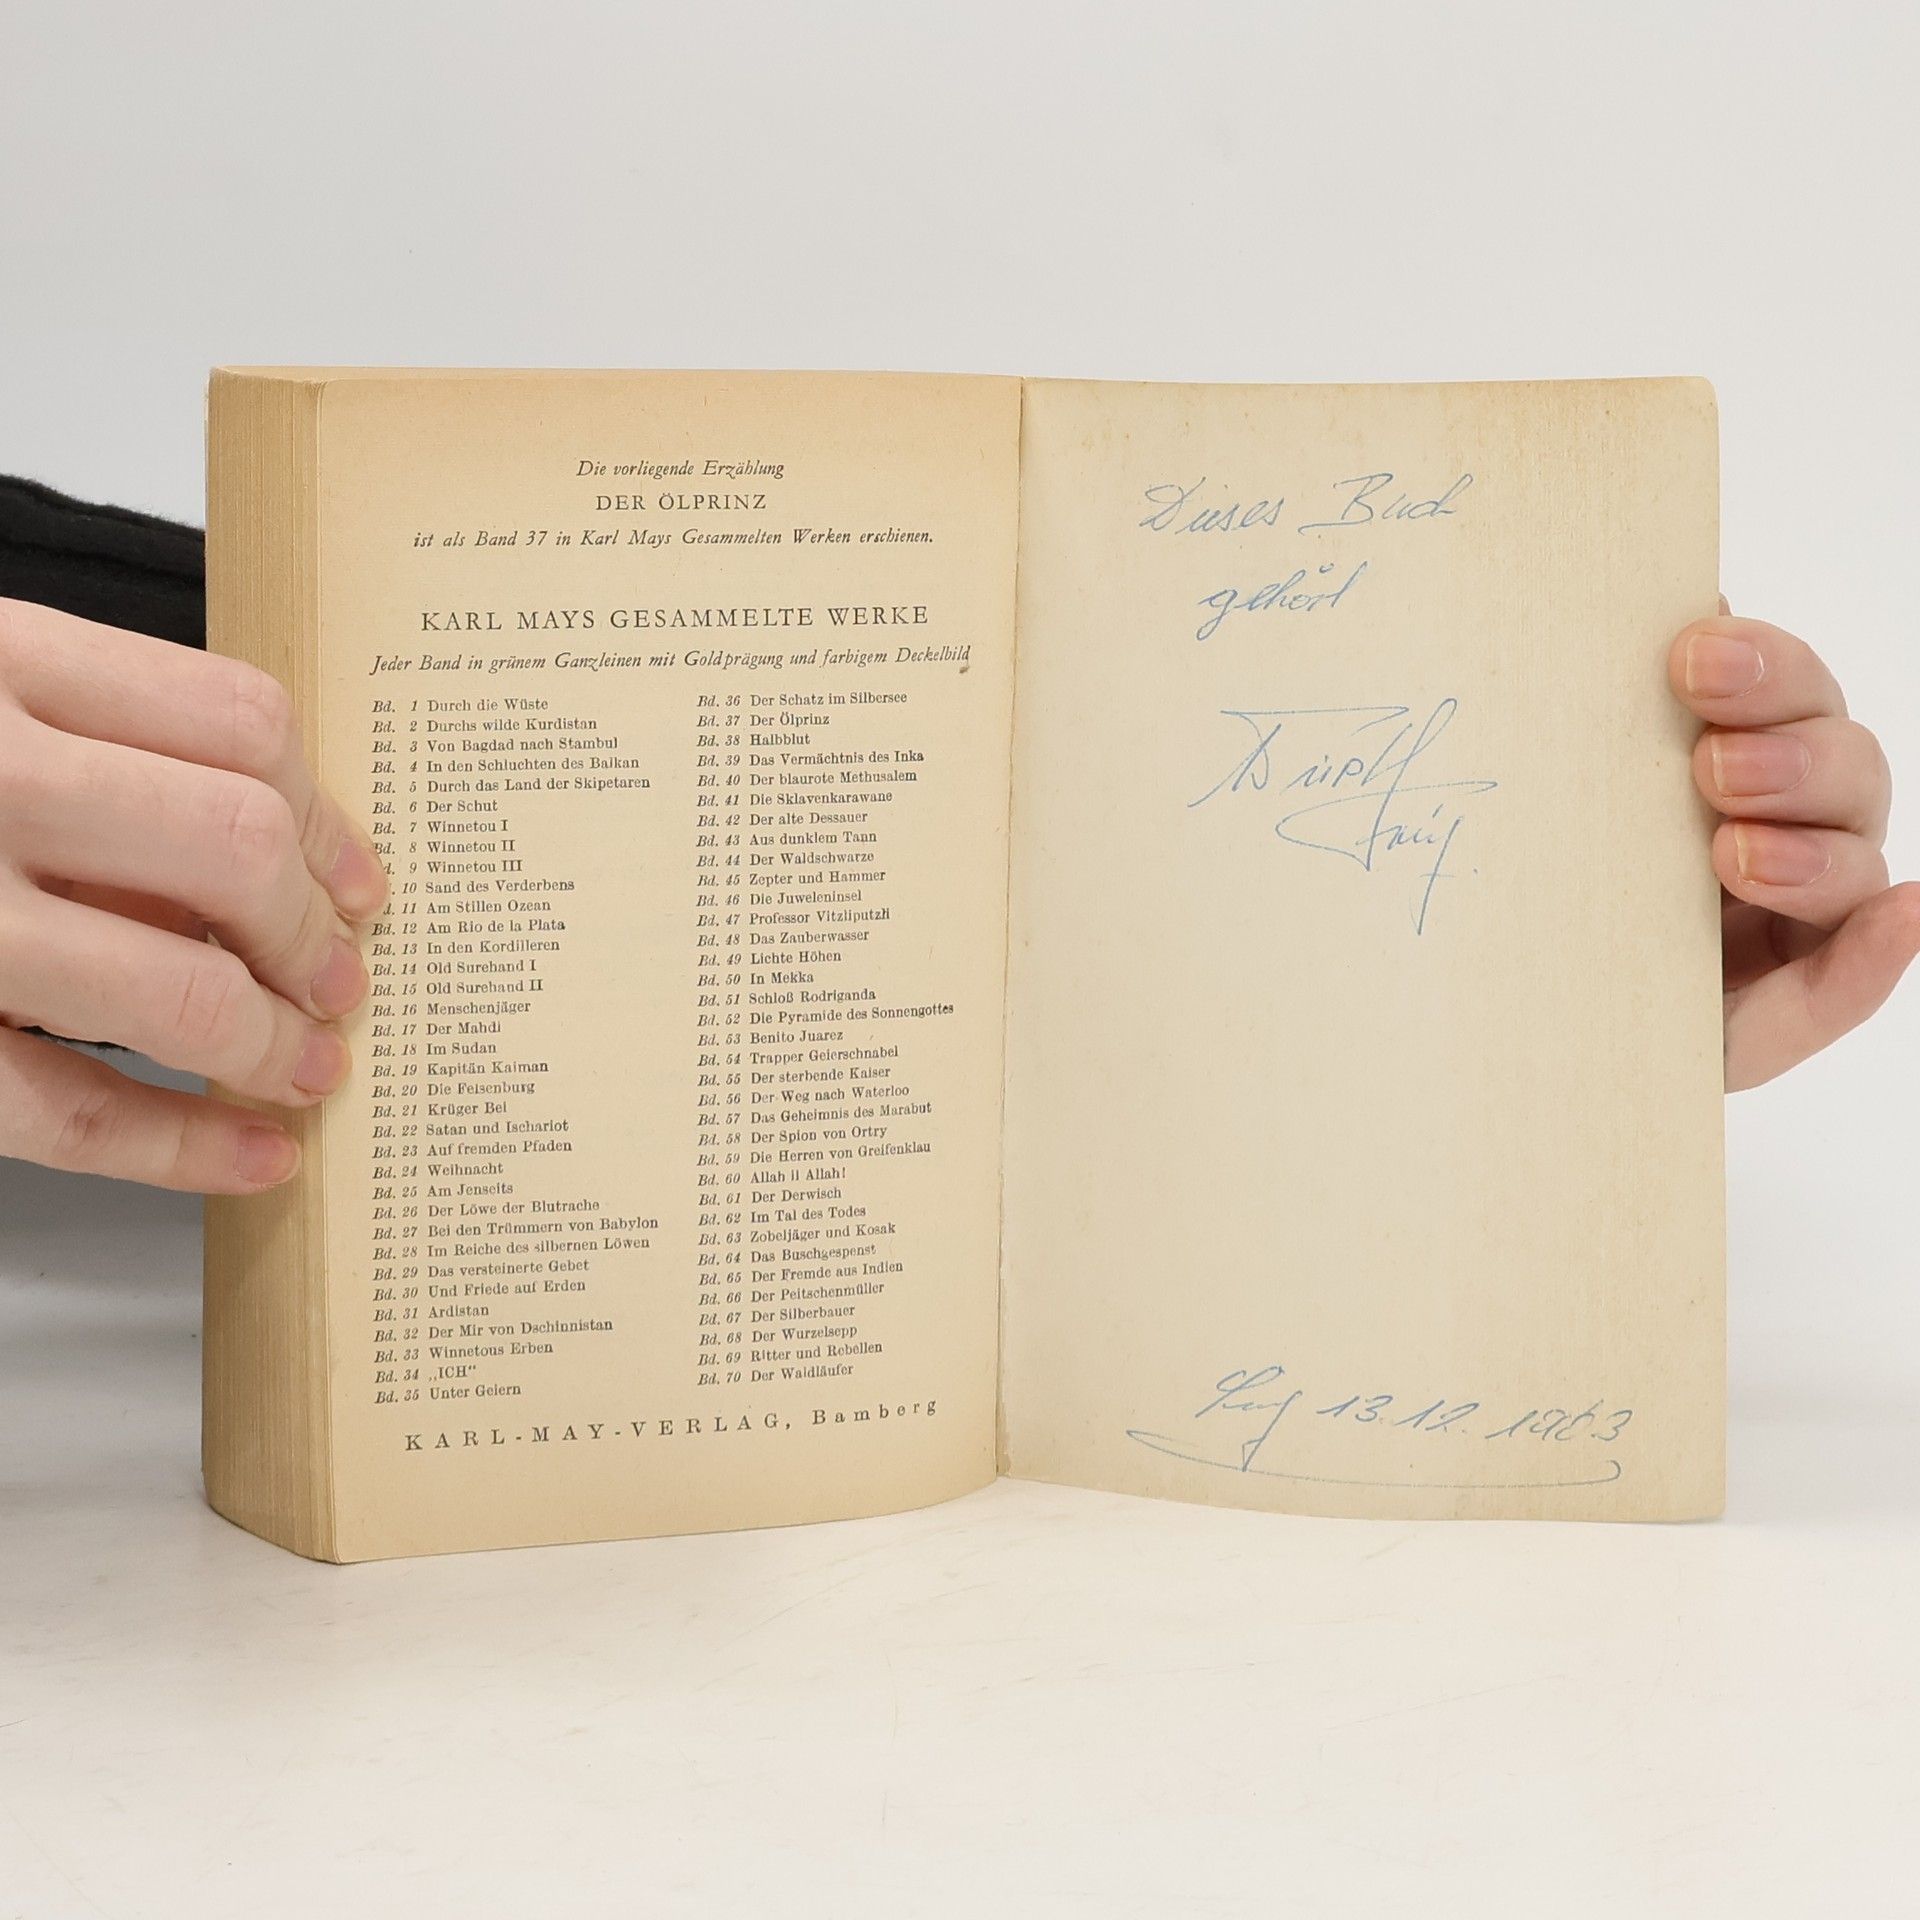 Die vorliegende Erzählung
DER ÖLPRINZ
ist als Band 37 in Karl Mays Gesammelten Werken erschienen.
KARL MAYS GESAMMELTE WERKE
Jeder Band in grünem Ganzleinen mit Goldprägung und farbigem Deckelbild
Bd. 1 Durch die Wüste
Bd. 2 Durchs wilde Kurdistan
Bd. 3 Von Bagdad nach Stambul
Bd. 4 In den Schluchten des Balkan
Bd. 5 Durch das Land der Skipetaren
Bd. 6 Der Schut
Bd. 7 Winnetou I
Bd. 8 Winnetou II
d. 9 Winnetou III
. 10 Sand des Verderbens
d. 11 Am Stillen Ozean
Bd. 12 Am Rio de la Plata
Bd. 13 In den Kordilleren
Bd. 14 Old Surehand I
Bd. 15 Old Surehand II
Bd. 16 Menschenjäger
Bd. 17 Der Mahdi
Bd. 18 Im Sudan
Bd. 19 Kapitän Kaiman
Bd. 20 Die Felsenburg
Bd. 21 Krüger Bei
Bd. 22 Satan und Ischariot
Bd. 23 Auf fremden Pfaden
Bd. 24 Weihnacht
Bd. 25 Am Jenseits
Bd. 26 Der Löwe der Blutrache
Bd. 27 Bei den Trümmern von Babylon
Bd. 28 Im Reiche des silbernen Löwen
Bd. 29 Das versteinerte Gebet
Bd. 30 Und Friede auf Erden
Bd. 31 Ardistan
Bd. 32 Der Mir von Dschinnistan
Bd. 33 Winnetous Erben
Bd. 34 „ICH“
Bd. 35 Unter Geiern
Bd. 36 Der Schatz im Silbersee
Bd. 37 Der Ölprinz
Bd. 38 Halbblut
Bd. 39 Das Vermächtnis des Inka
Bd. 40 Der blaurote Methusalem
Bd. 41 Die Sklavenkarawane
Bd. 42 Der alte Dessauer
Bd. 43 Aus dunklem Tann
Bd. 44 Der Waldschwarze
Bd. 45 Zepter und Hammer
Bd. 46 Die Juweleninsel
Bd. 47 Professor Vitzliputzli
Bd. 48 Das Zauberwasser
Bd. 49 Lichte Höhen
Bd. 50 In Mekka
Bd. 51 Schloß Rodriganda
Bd. 52 Die Pyramide des Sonnengottes
Bd. 53 Benito Juarez
Bd. 54 Trapper Geierschnabel
Bd. 55 Der sterbende Kaiser
Bd. 56 Der Weg nach Waterloo
Bd. 57 Das Geheimnis des Marabut
Bd. 58 Der Spion von Ortry
Bd. 59 Die Herren von Greifenklau
Bd. 60 Allah il Allah!
Bd. 61 Der Derwisch
Bd. 62 Im Tal des Todes
Bd. 63 Zobeljäger und Kosak
Bd. 64 Das Buschgespenst
Bd. 65 Der Fremde aus Indien
Bd. 66 Der Peitschenmüller
Bd. 67 Der Silberbauer
Bd. 68 Der Wurzelsepp
Bd. 69 Ritter und Rebellen
Bd. 70 Der Waldläufer
KARL-MAY-VERLAG, Bamberg
Dieses Buch
gehört
13.12.1963